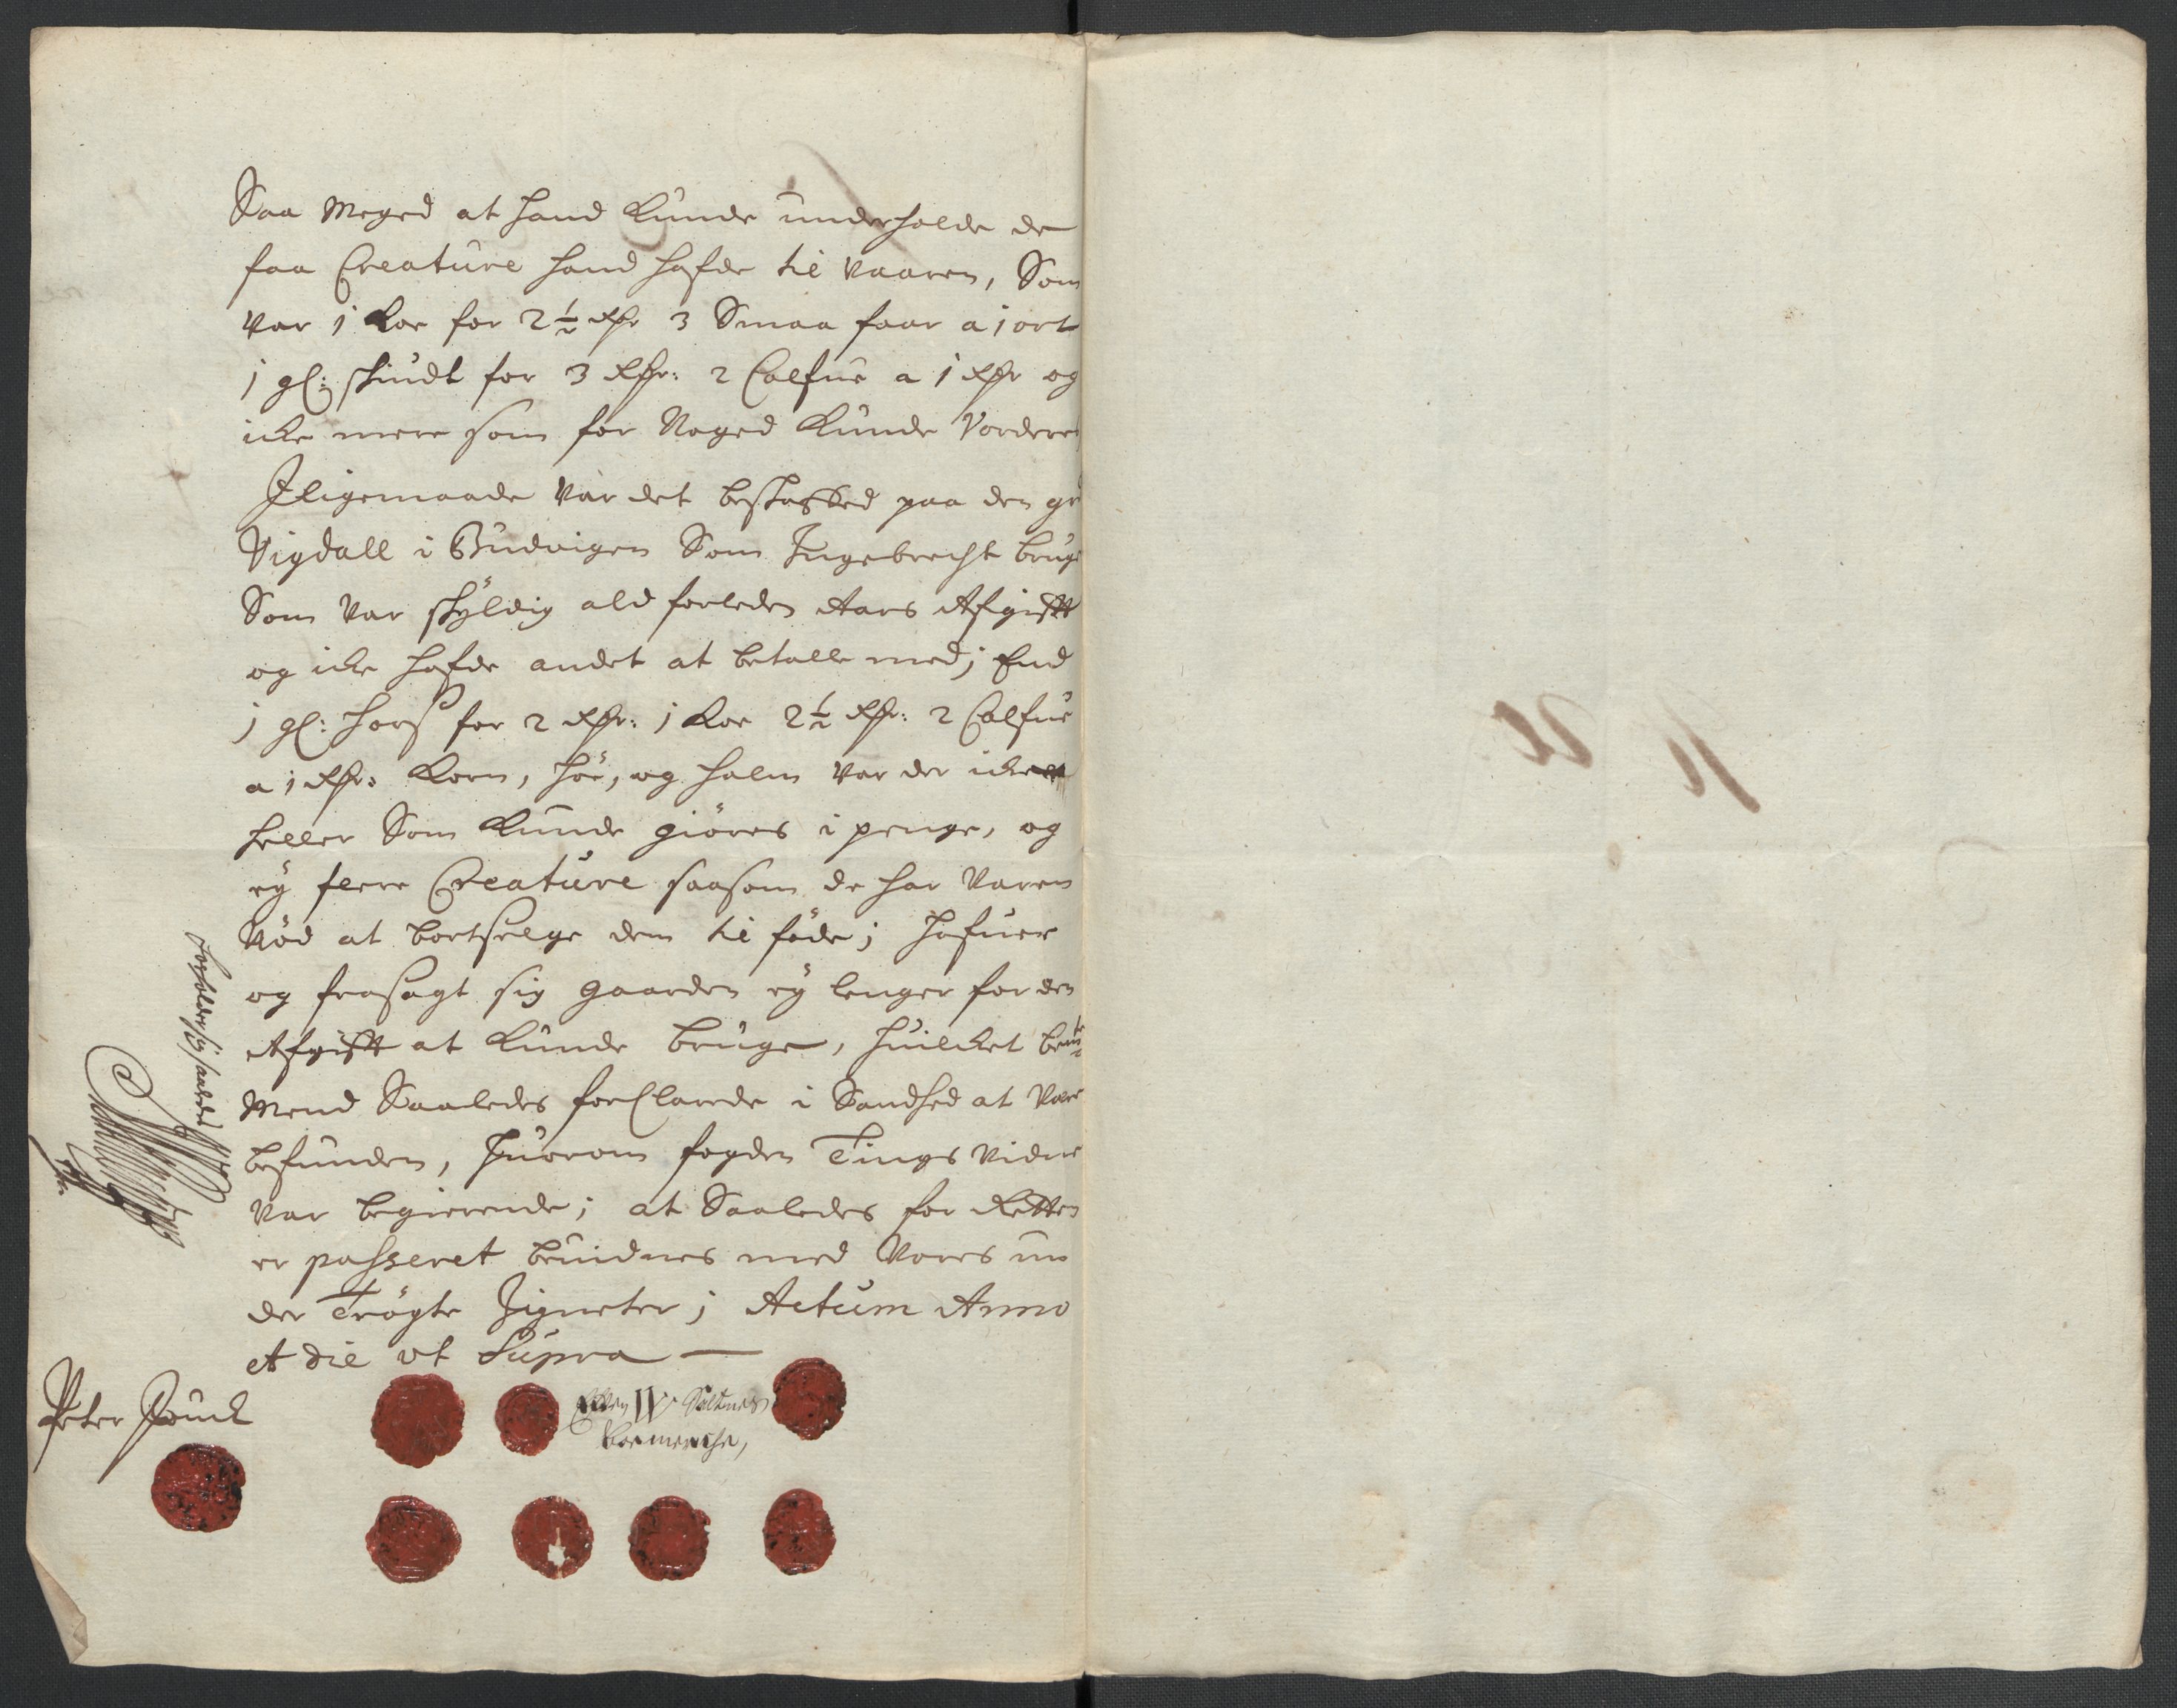 Saa Meged at hand Kunde underholde de
faa Creature hand hafde til Vaaren, Som
Var 1 Koe for 2½ Rdr 3 Smaa faar a 1 ort
1 gl: skindt for 3 Rdr: 2 Calfue a 1 Rdr og
icke mere som for Noged Kunde Vordere
Jligemaade Var det beskaffed paa den gr
Vigdall i Budvigen Som Ingebrecht brug
Som Var skyldig ald forleden Aars Afgifft
og icke hafde andet at betalle med; End
1 gl: hors for 2 Rdr: 1 Koe 2½ Rdr: 2 Calfue
a 1 Rdr: Korn, höe, og halm Var der icke
heller Som Kunde giöres i penge, og
ey flere Creature saasom de har Varen
Nöd at bortselge dem til föde; Hafuer
og frasagt sig gaarden ey lenger for den
Afgifft at Kunde bruge, huilcket bemte
Mend Saaledes forclarede i Sandhed at Vær
befunden, huorom fogden Tings Vidne
Var begierende; at Saaledes for Retten
er passeret Beuidnes med Vores un
der Trögte Zigneter; Actum Anno
et die ut Supra
Peter